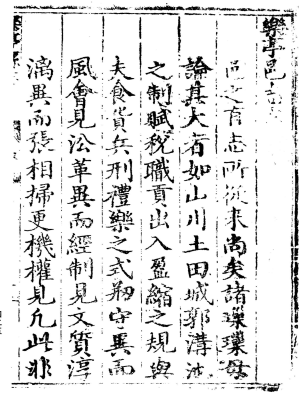 樂亭邑志
邑之有志所從来尚矣諸璅璅毋
論其大者如山川土田城郭溝池
之制賦稅職貢出入盈縮之規與
夫食貨兵刑禮樂之式刱守異而
風會見沿革異而經制見文質淳
漓異而張相掃更機權見凢此非